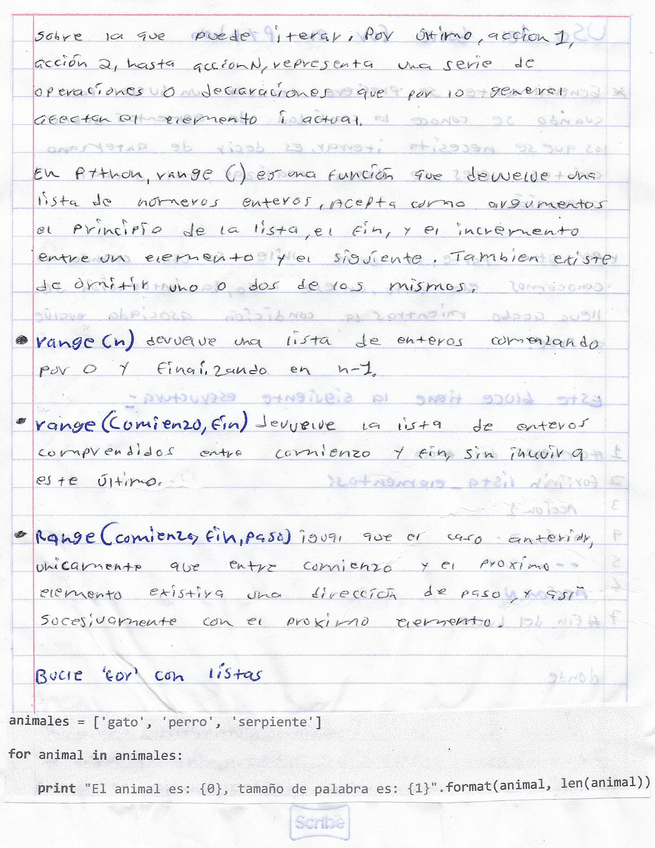 sobre la que puede iterar. Por último, accion 1,
acción 2, hasta acciónN, representa una serie de
operaciones o declaraciones que por lo general
afectan al elemento i actual.
En Python, range () es una función que devuelve una
lista de números enteros, Acepta como argumentos
el principio de la lista, el fin, y el incremento
entre un elemento y el siguiente. Tambien existe
de omitir uno o dos de los mismos.
range (n) devuelve una lista de enteros comenzando
por 0 y finalizando en n-1.
range (Comienzo, fin) devuelve la lista de enteros
comprendidos entre comienzo y fin, sin incluir a
este último.
Range (comienzo, fin, paso) igual que el caso anterior,
unicamente que entre comienzo y el proximo
elemento existira una dirección de paso, y asi
sucesivamente con el proximo elemento.
Bucle 'for' con listas
animales = ['gato', 'perro', 'serpiente']
for animal in animales:
print "El animal es: {0}, tamaño de palabra es: {1}".format(animal, len(animal))
Scribe